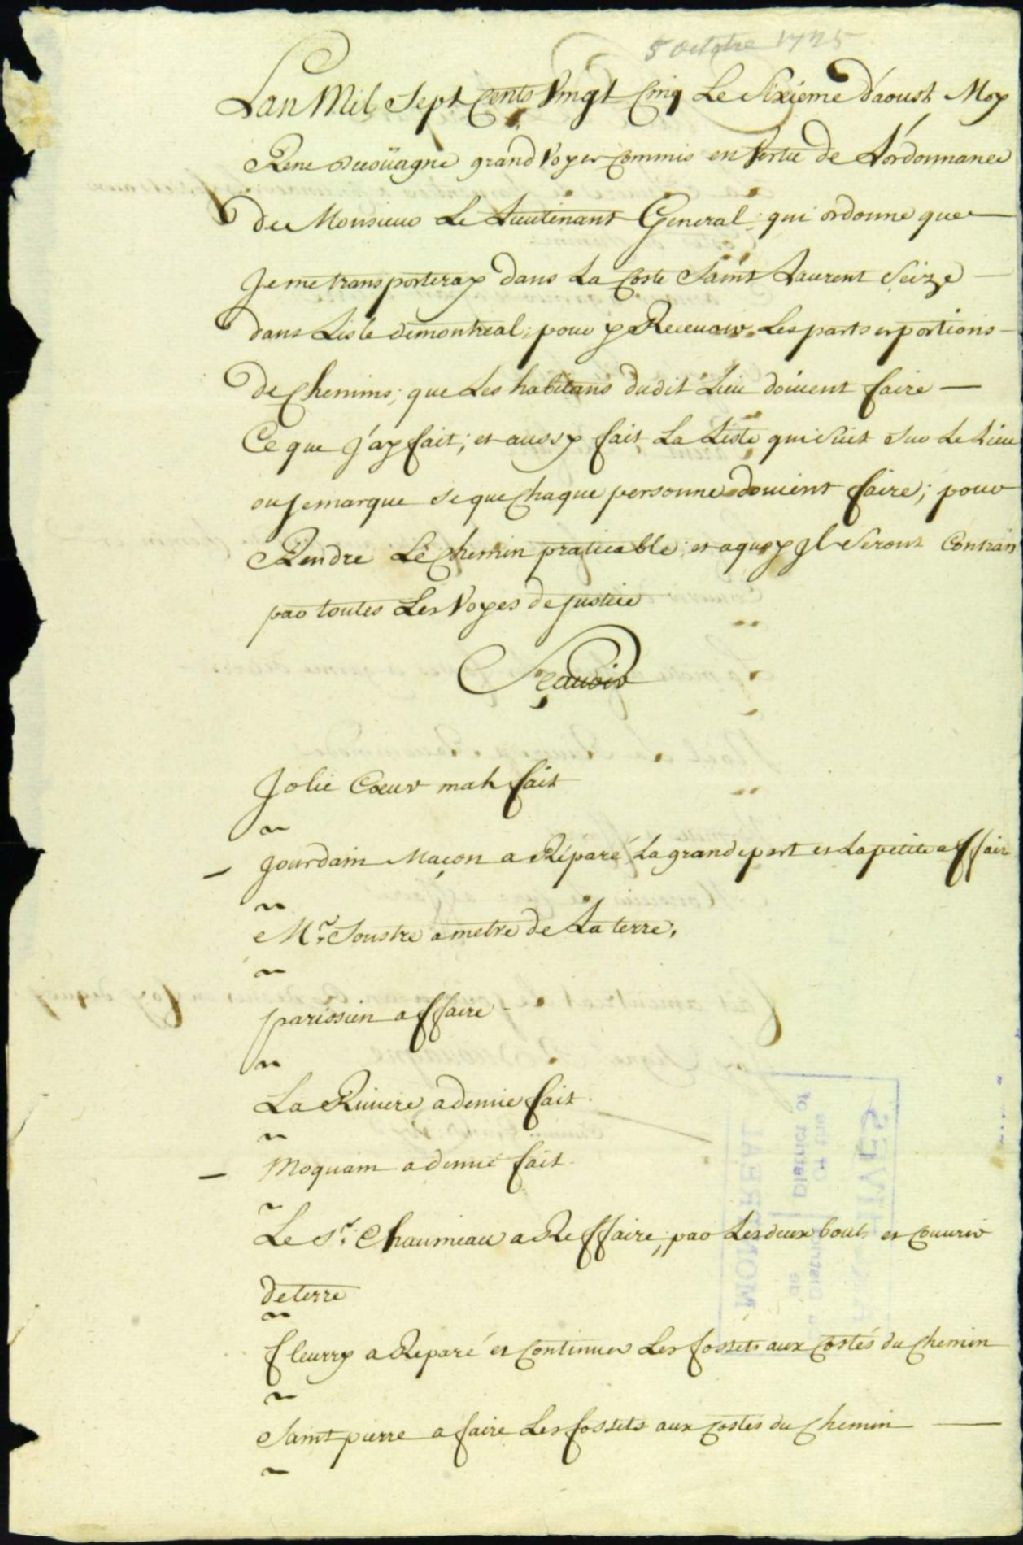 5 octobre 1725
Lan Mil Sept Cents Vingt Cinq Le Sixieme d'aoust Moy
Rene decoüagne grand Voyer commis en Vertu de L'ordonnance
de Monsieur Le Lieutenant General qui ordonne que
Je me transporteray dans La Coste Saint Laurent Scize
dans Lisle demontreal; pour y Recevoir Les parts et portions
de Chemins; que Les habitans dudit Lieu doivent faire
Ce que J'ay fait; et aussy fait La Liste qui suit sur Le Lieu
ou Je marque se que Chaque personne doivent faire; pour
Rendre Le Chemin praticable; et aquoy Jl Seront Contrain
par toutes Les Voyes de justice
Sçauoir
Jolie Cœur mal fait
Jourdain Maçon a Réparé La grande part et La petite affair
Mr. Soustre a metre de La terre,
parissien affaire
La Riuiere a demie fait
Moquam a demie fait
Le Sr. Chaumeau a Reffaire; par Les deux bouts et Couurir
de terre
fleurry a Reparé et Continuer Les fossets aux Costés du Chemin
Saint pierre a faire Les fossets aux Costés du Chemin
ARCHIVES
District of
de
MONTREAL